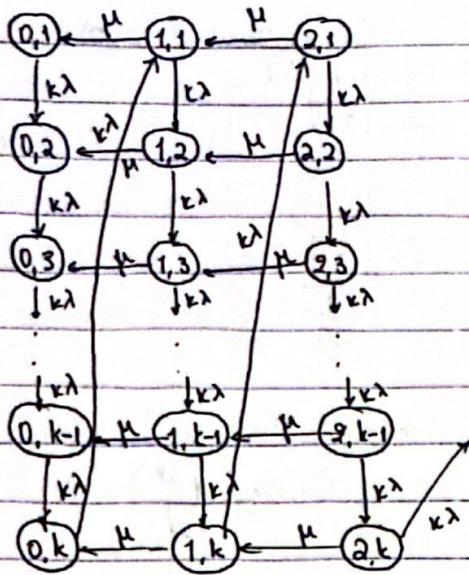 0,1 μ 1,1 μ 2,1
kλ kλ kλ
0,2 kλ μ 1,2 μ 2,2
kλ kλ kλ kλ
0,3 μ 1,3 μ 2,3
kλ kλ kλ
kλ kλ kλ
0,k-1 μ 1,k-1 μ 2,k-1
kλ kλ kλ kλ
0,k μ 1,k μ 2,k